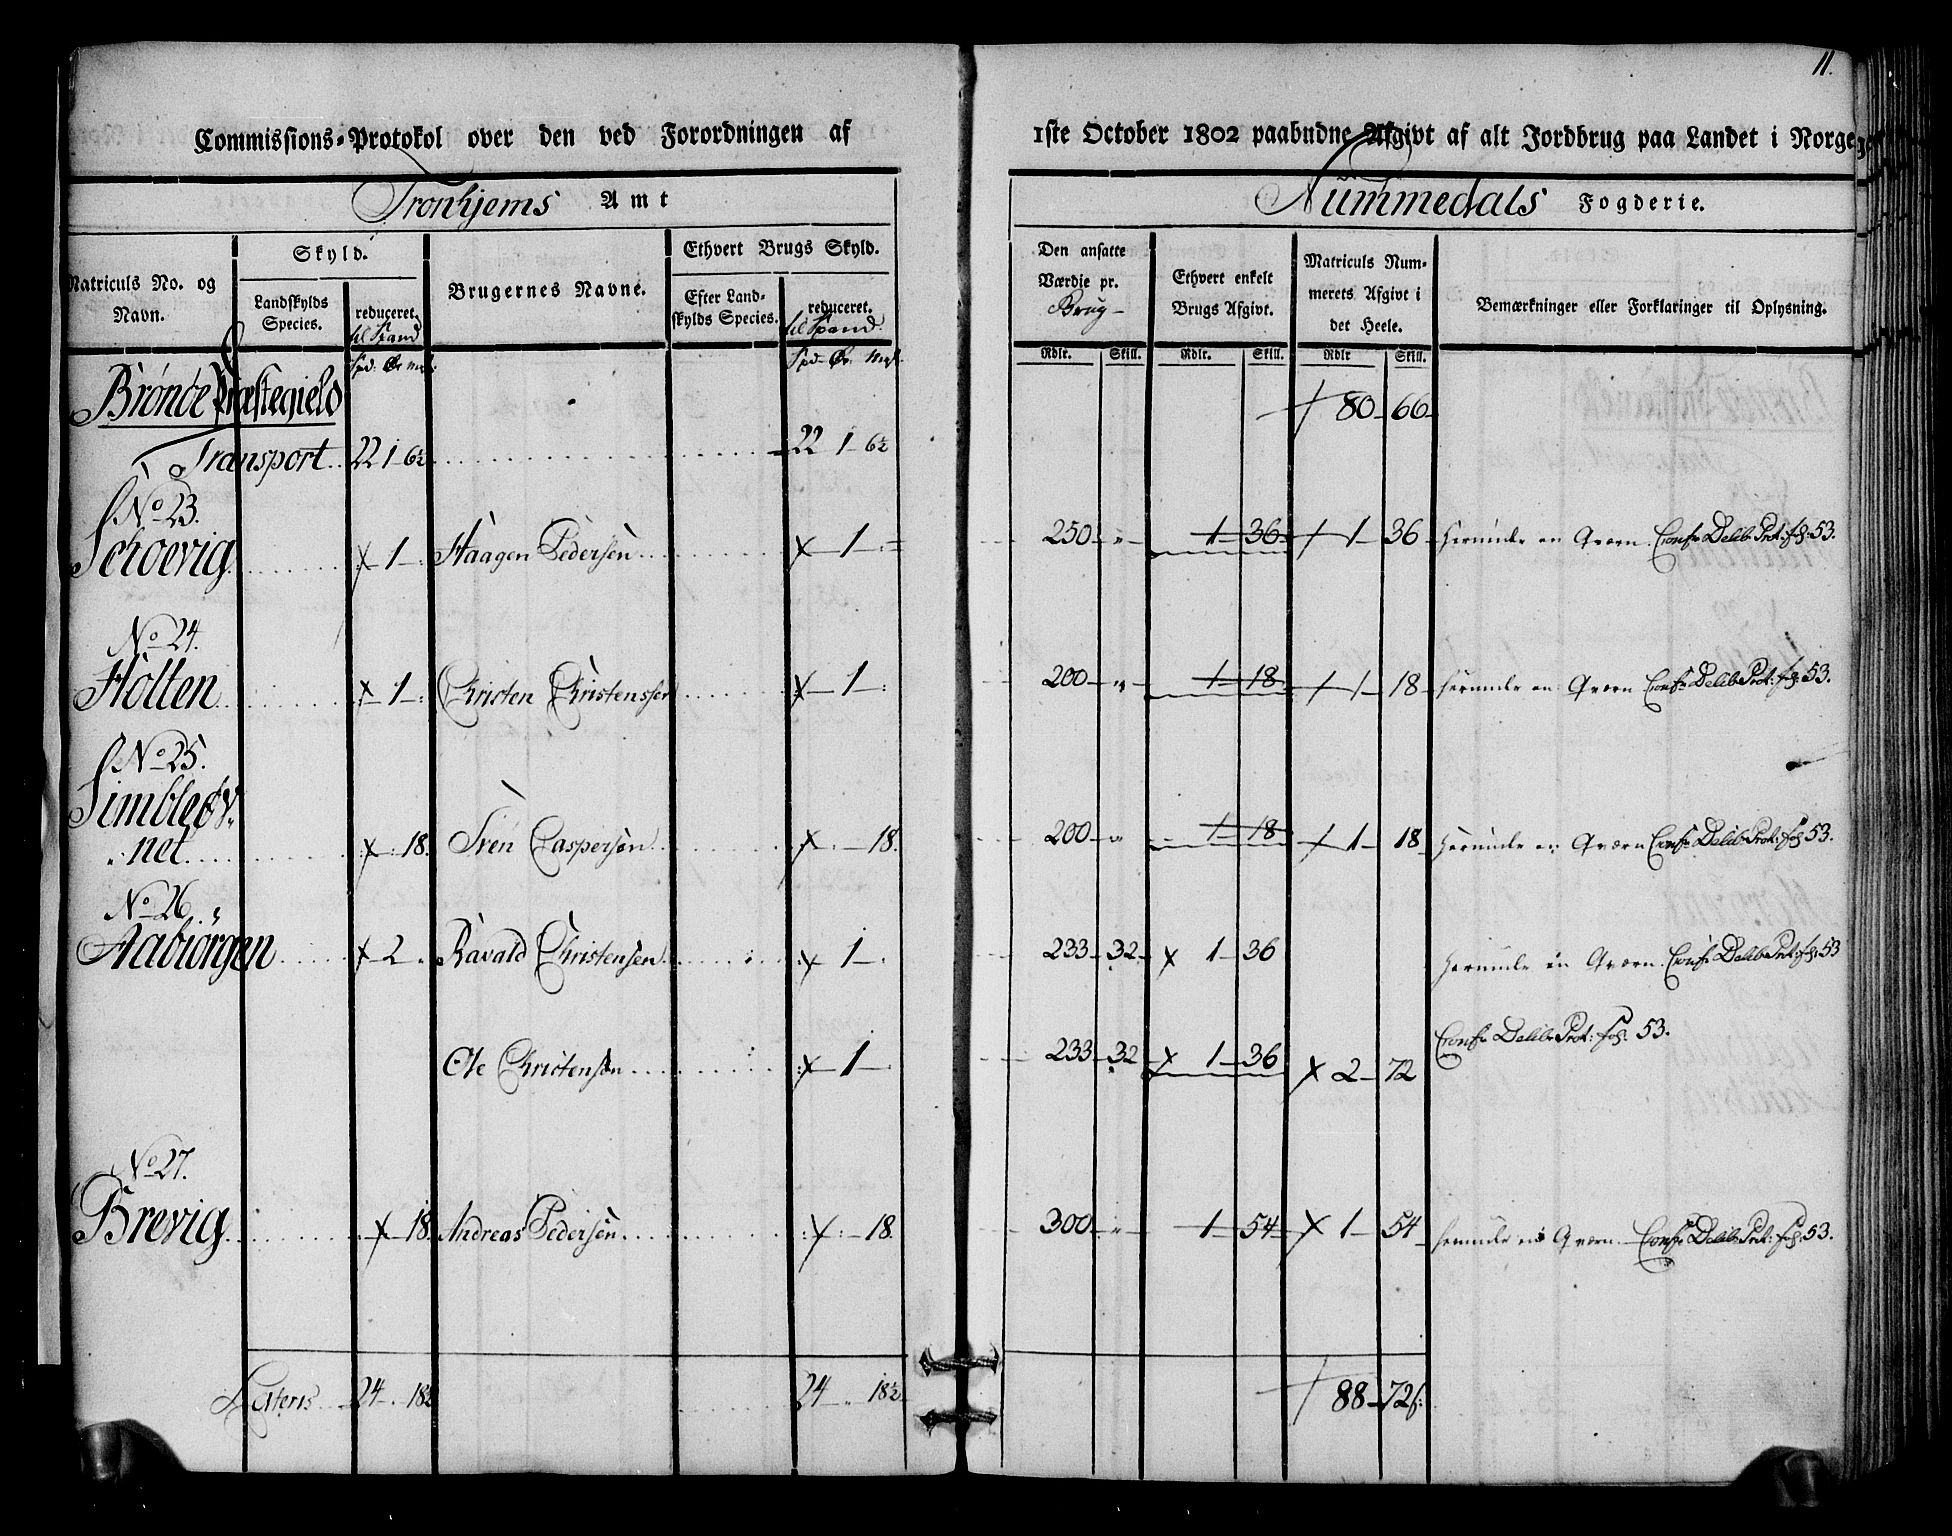 11.
Commissions-Protokol over den ved Forordningen af 1ste October 1802 paabudne Afgivt af alt Jordbrug paa Landet i Norge
Tronhjems Amt
Nummedals Fogderie.
Matriculs No. og Navn.
Skyld.
Landskylds Species.
reduceret. til Spand
Brugernes Navne.
Ethvert Brugs Skyld.
Efter Landskylds Species.
reduceret. til Spand.
Den ansatte Værdie pr. Brug
Ethvert enkelt Brugs Afgivt.
Matriculs Nummerets Afgivt i det Heele.
Bemærkninger eller Forklaringer til Oplysning.
Spd: Ør. Mrk. Spd: Ør. Mrk. Rdlr. Skill. Rdlr. Skill. Rdlr Skill.
Brönöe Præstegield 80 66
Transport 22 1 6½ 22 1 6½
No 23.
Schoevig 1 Haagen Pedersen 1 250 " 1 36 1 36 herunder en Qværn. Conf: Delib: Prot: fol: 53.
No 24.
Holten 1 Christen Christensen 1 200 " 1 18 1 18 herunder en Qværn Conf: Delib: Prot: fol: 53.
No 25.
Simbleøv-
net 18. Sven Caspersen 18. 200 " 1 18 1 18 herunder en Qværn Conf: Delib: Prot: fol: 53.
No 26.
Aabiörgen 2 Ravald Christensen 1 233 32 1 36 herunder en Qværn. Conf: Delib: Prot: fol: 53
Ole Christensen 1 233 32 1 36 2 72 Conf: Delib: Prot: fol: 53.
No 27.
Brevig 18. Andreas Pedersen 18. 300 " 1 54 1 54 herunder en Qværn. Conf: Delib: Prot: fol: 53.
Lateris 24 18½ 24 18½ 88 72